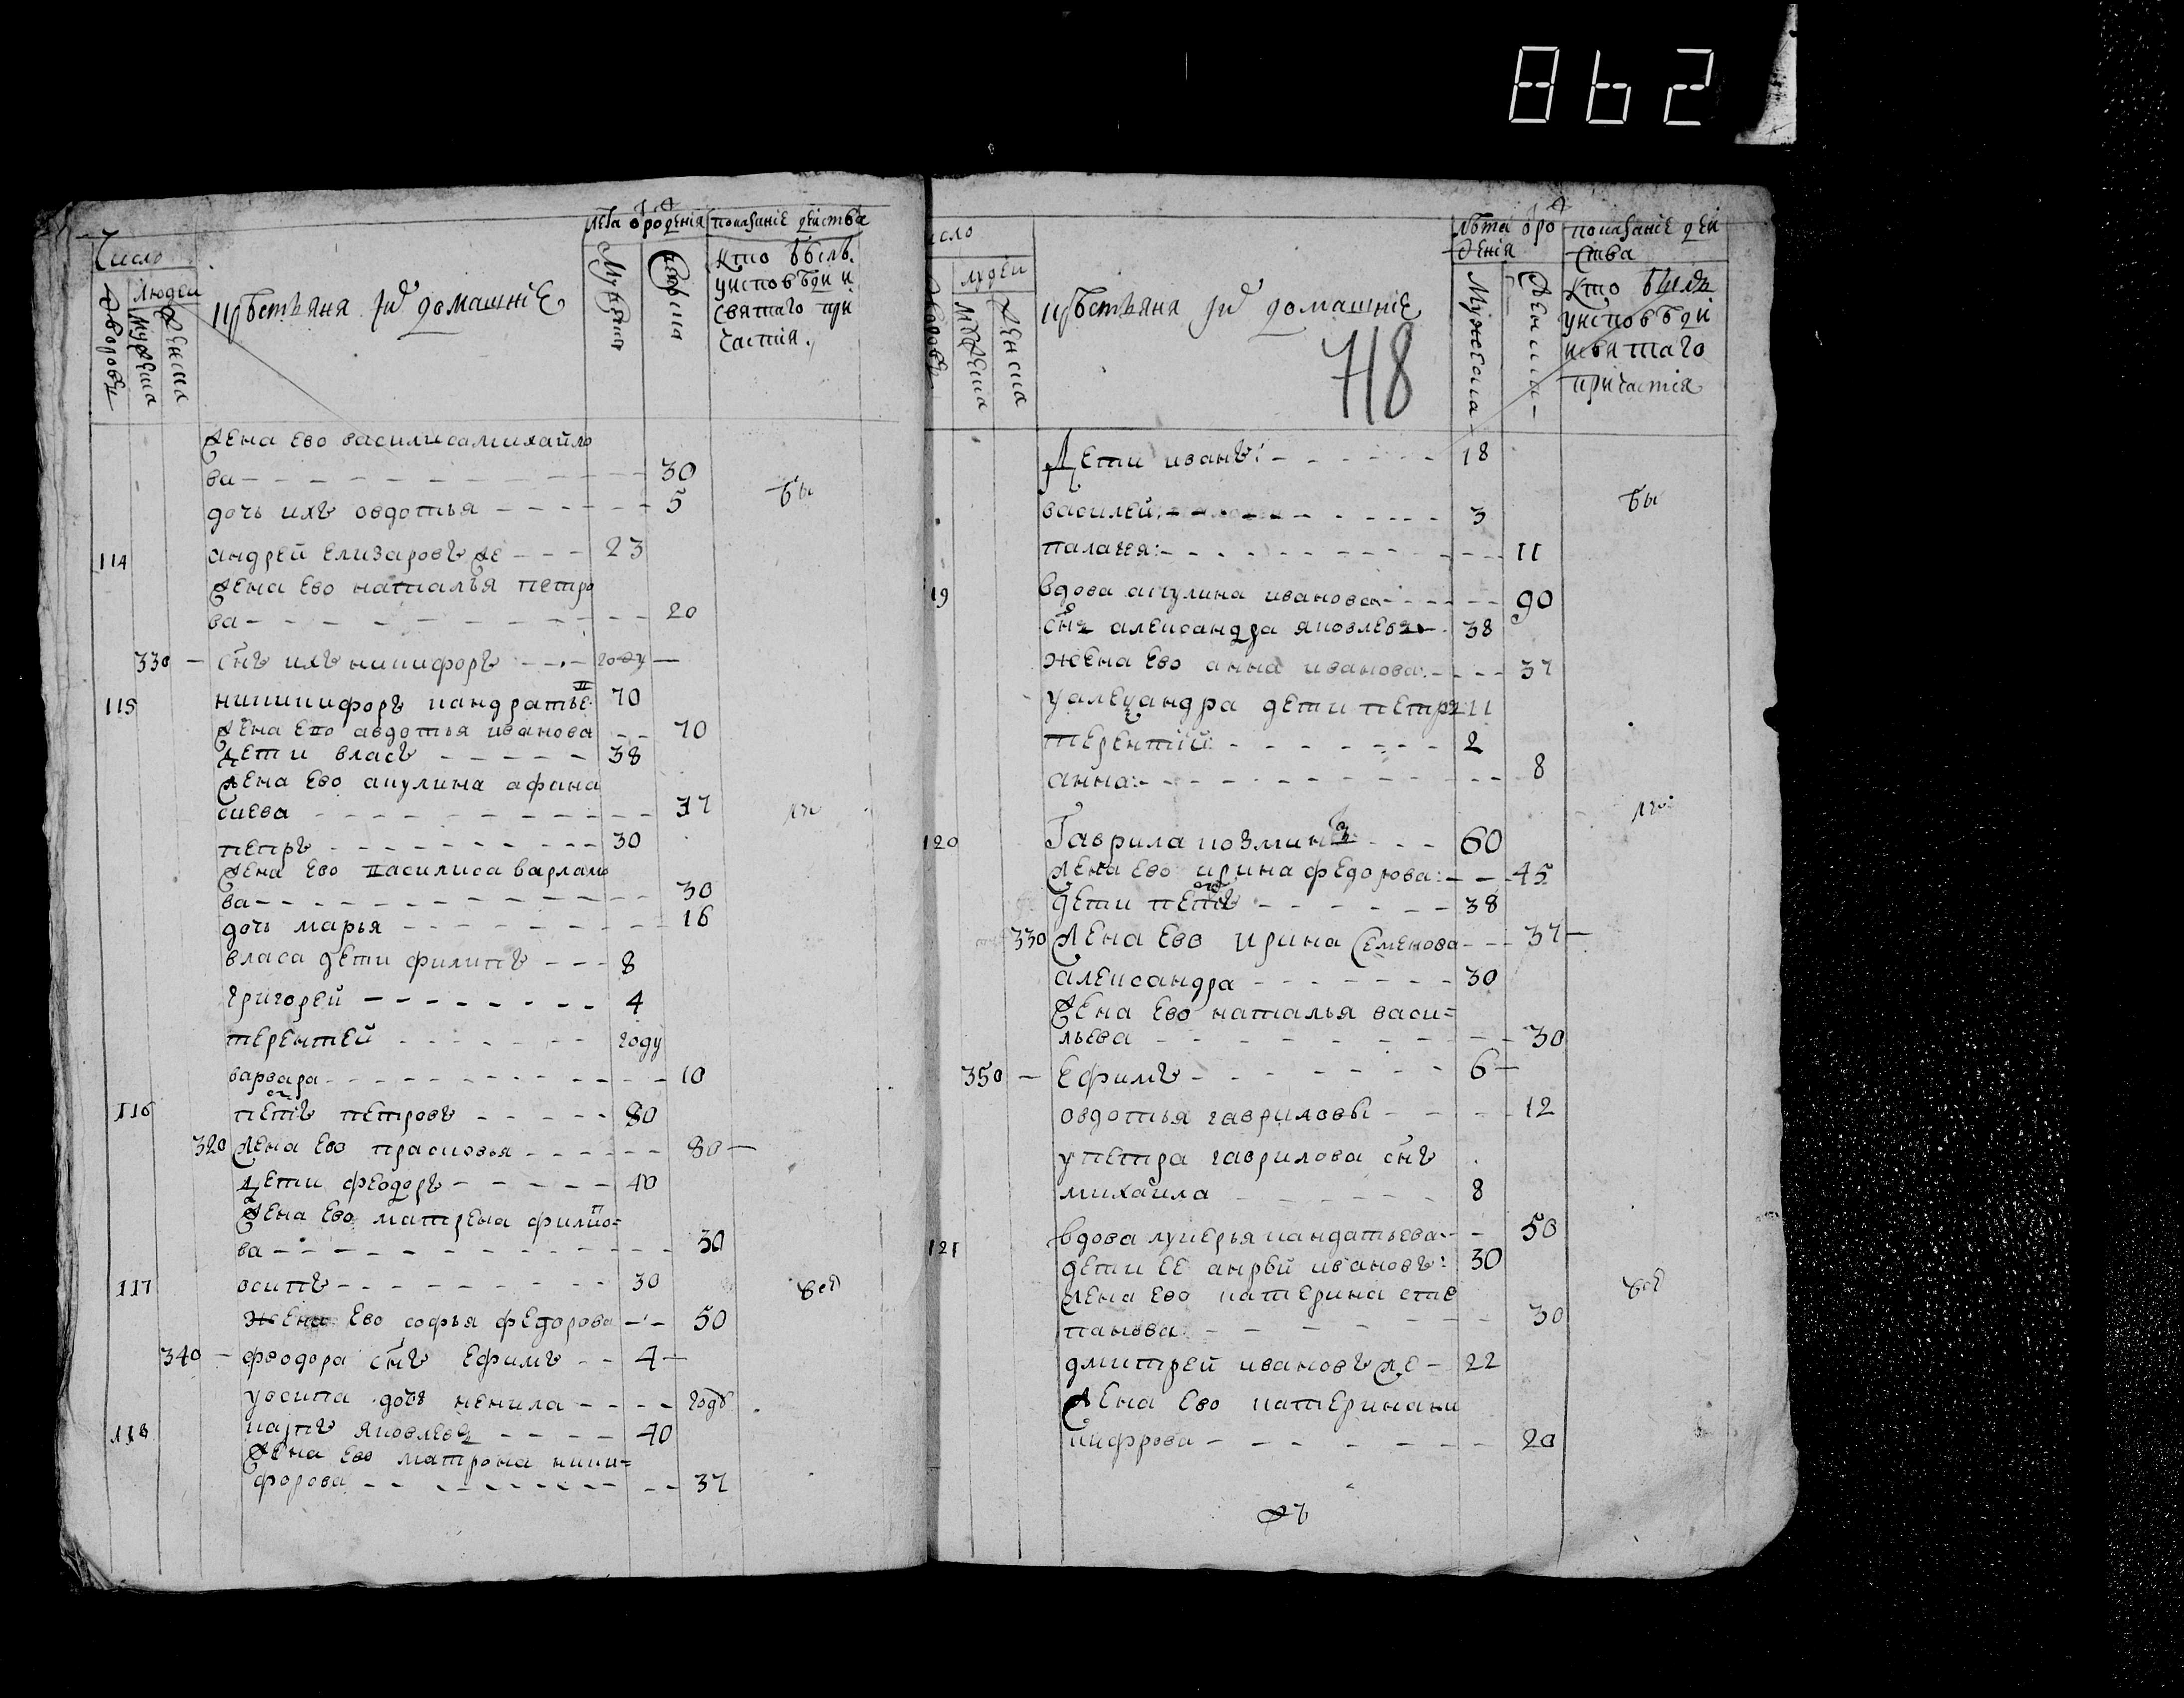 862
Число
Дворовъ
людеи
мужеска
женска
крестьяня и домашніе
лета ѿ роденія
Мужеска
женска
показаніе действа
кто былъ
уисповѣди и
святаго при
частія
жена ево василиса михайло
ва 30
дочь ихъ овдотья 5
бы
114 андрей елизаровъ же 23
жена ево наталья петро
ва 20
330 снъ ихъ никифоръ году
115 никикифоръ кандратье 70
жена ево авдотья иванова 70
дети власъ 38
жена ево акулина афана
сиева 37
петръ 30
жена ево василиса варламо
ва 30
дочь марья 16
власа дети филипъ 8
григорей 4
терентей году
варвара 10
116 петръ петровъ 80
320 жена ево прасковья 80
дети феодоръ 40
жена ево матрена филипо=
ва 30
117 восипъ 30
жена ево софья федорова 50
всѣ
340 феодора снъ ефимъ 4
уосипа дочь ненила годъ
118 карпъ яковлевъ 40
жена ево матрона ники=
форова 37
исло
людеи
мужеска
женска
крестьяня и домашніе
718
лѣта ѿ ро
денія
Мужеска
женска
показаніе деи
ства
кто былъ
уисповѣди
исвятаго
причастія
Дети иванъ: 18
бы
василей: 3
палагея: 11
19 вдова акулина иванова 90
снъ александра яковлевъ 38
жена ево анна иванова: 37
уалександра дети петръ 11
терентий: 2
анна: 8
120 Гаврила козминъ 60
жена ево ирина федорова: 45
дети петръ 38
330 жена ево ирина семенова 37
александра 30
жена ево наталья васи=
льева 30
350 ефимъ 6
овдотья гавриловы 12
упетра гаврилова снъ
михаила 8
121 вдова лукерья кандатьева 50
дети ее анрѣй ивановъ: 30
жена ево катерина сте
панова 30
всѣ
дмитрей ивановъ же 22
жена ево катерина ни
кифрова 20